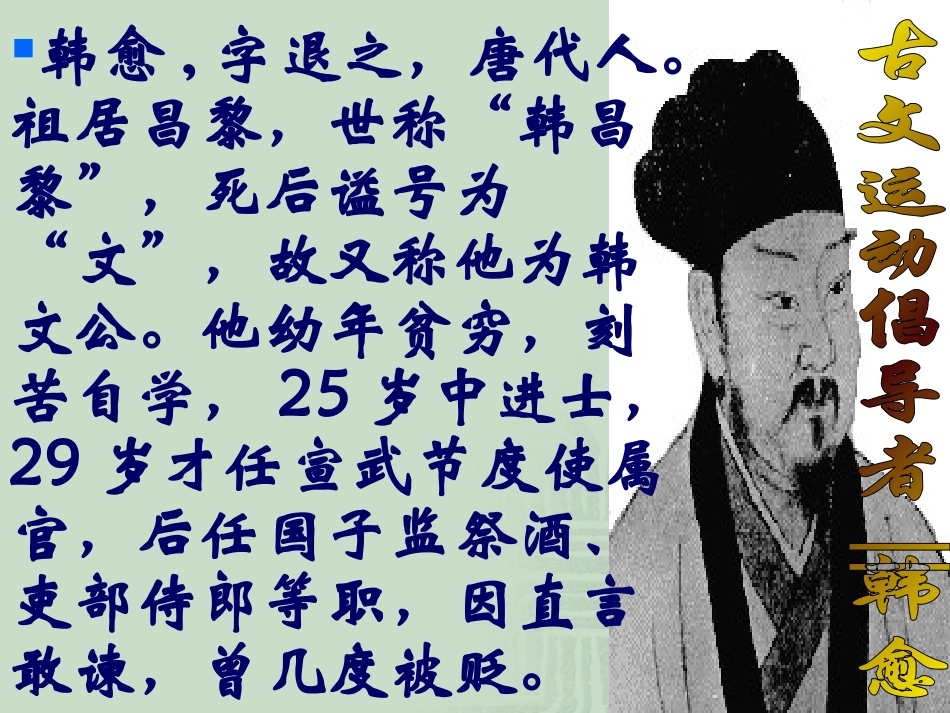 韩愈,字退之，唐代人。
祖居昌黎，世称“韩昌
黎”，死后谥号为
“文”，故又称他为韩
文公。他幼年贫穷，刻
苦自学， 25 岁中进士，
29 岁才任宣武节度使属
官，后任国子监祭酒、
吏部侍郎等职，因直言
敢谏，曾几度被贬。
古文运动倡导者——韩愈